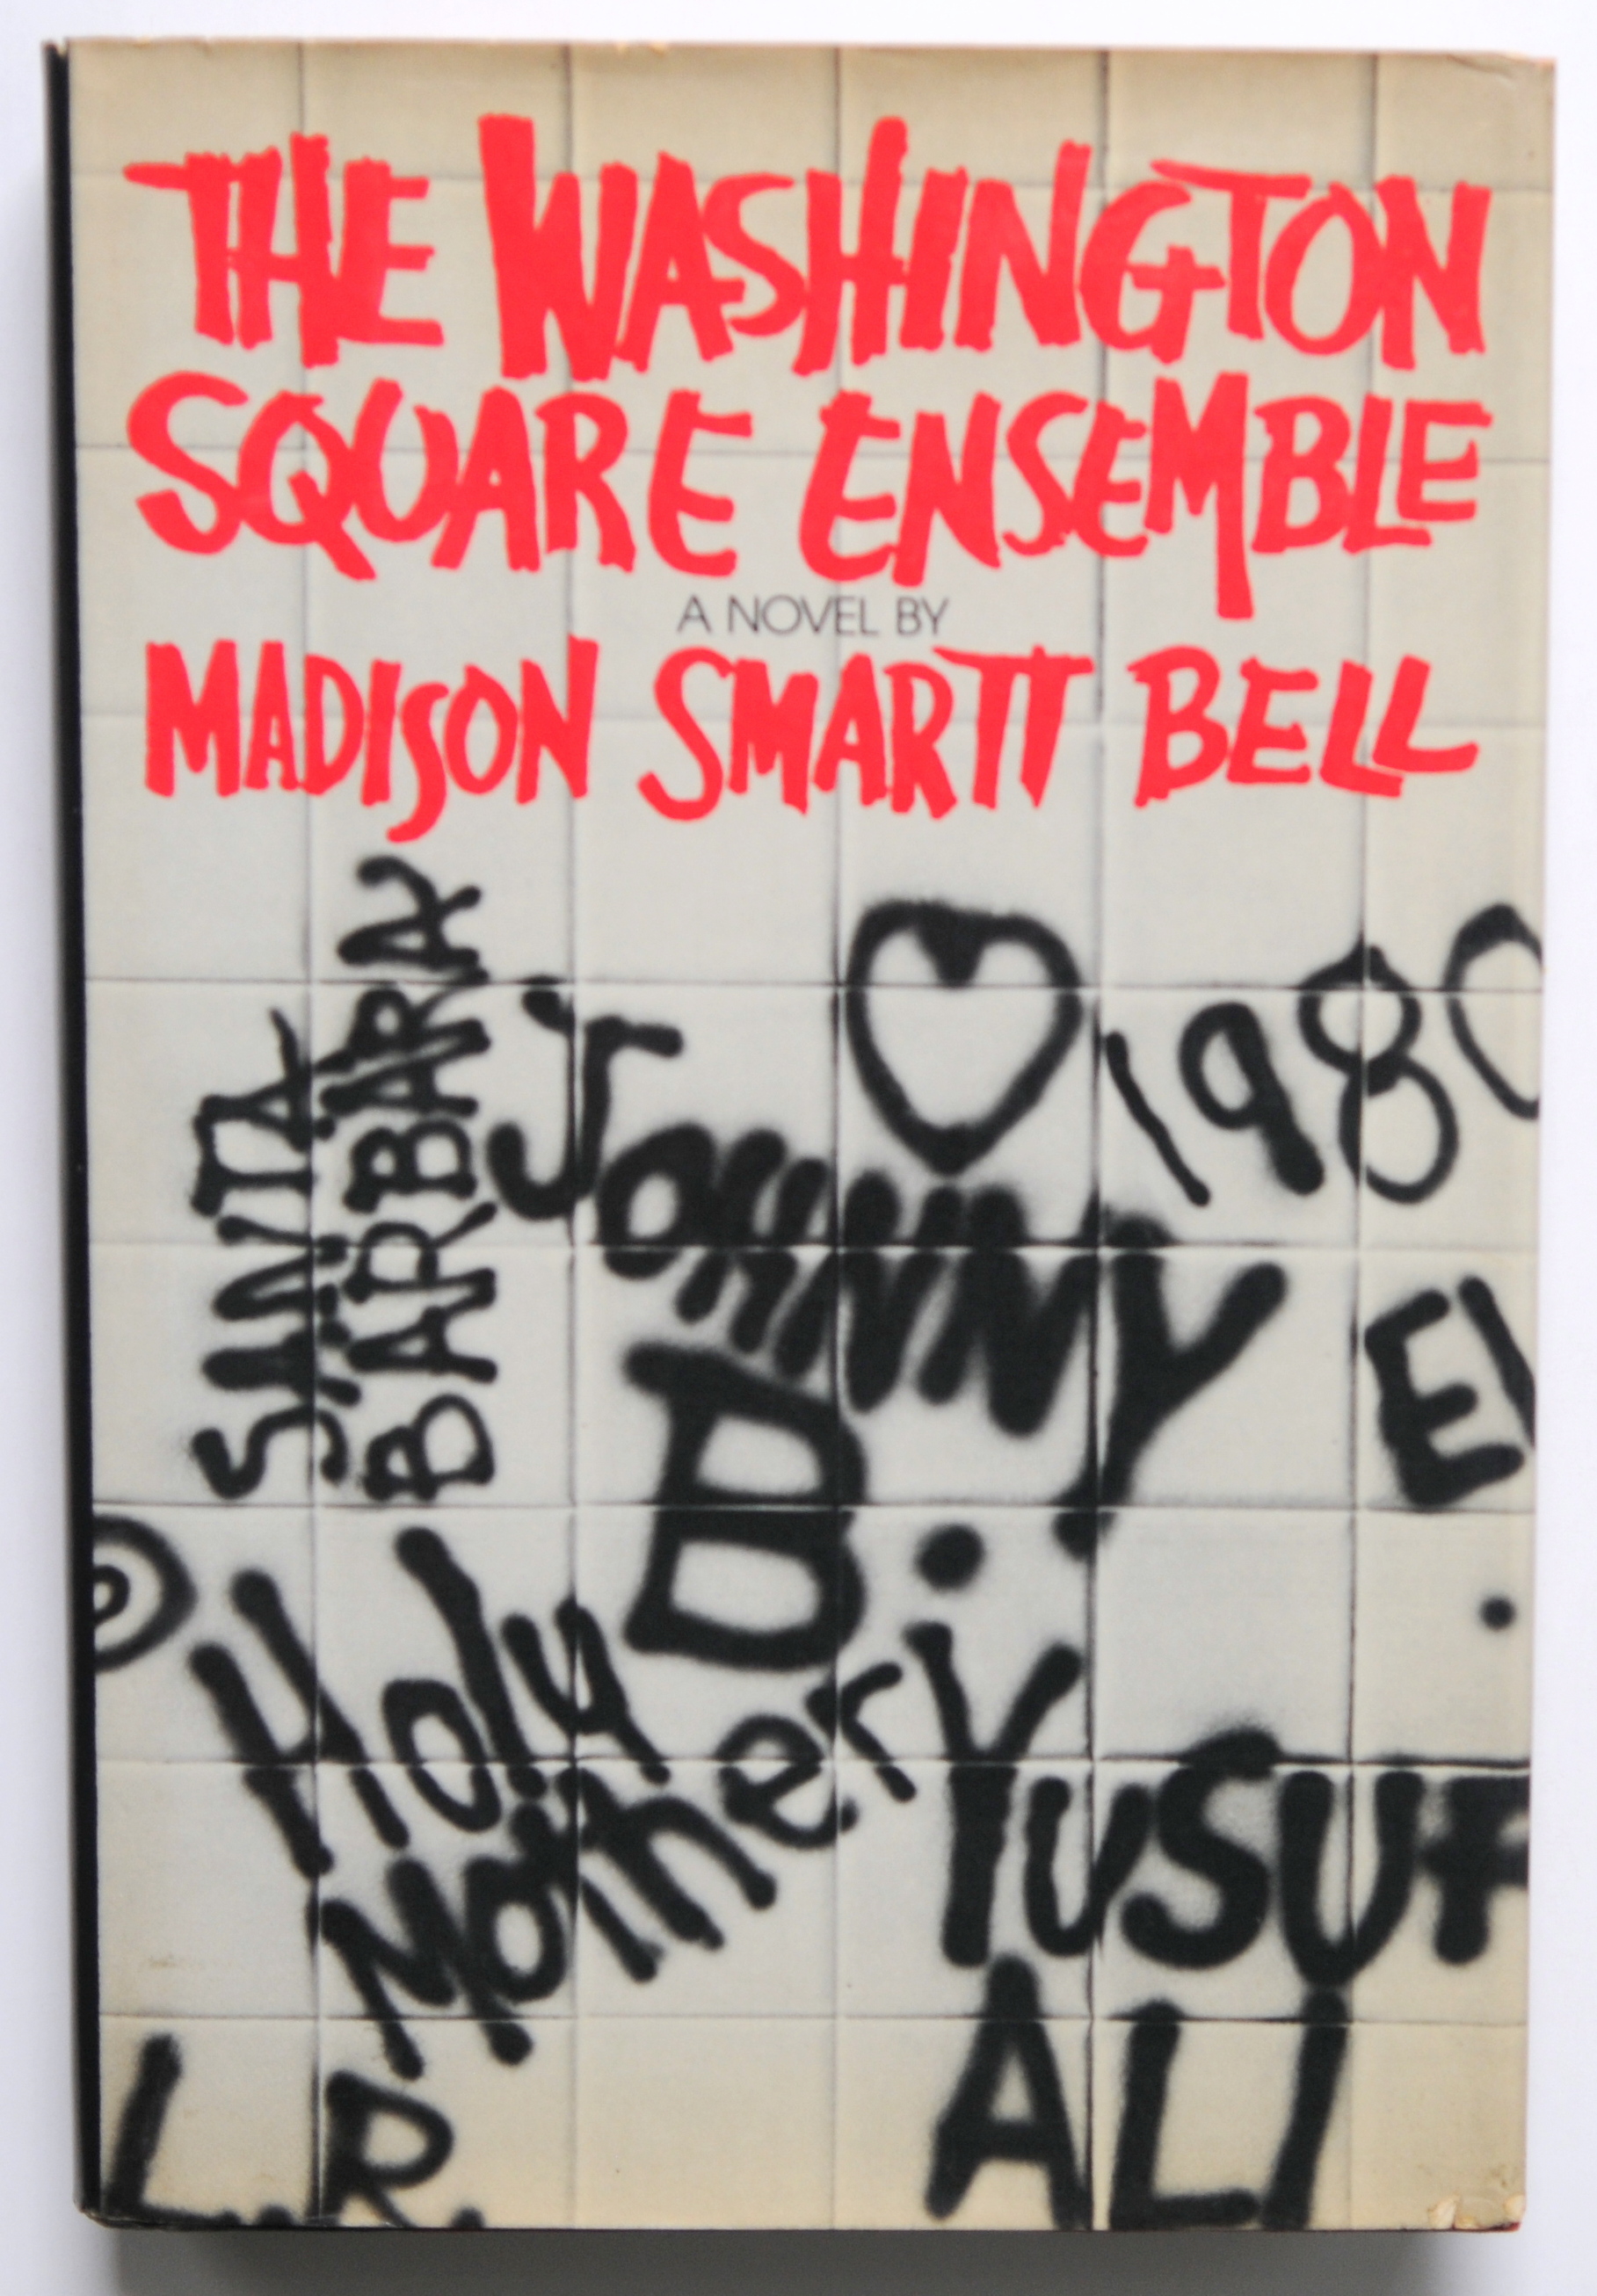 THE WASHINGTON
SQUARE ENSEMBLE
A NOVEL BY
MADISON SMARTT BELL
SANTA
BARBARA
JOHNNY
B.
1980
Holy
Mother
YUSUF
ALI
L.R.